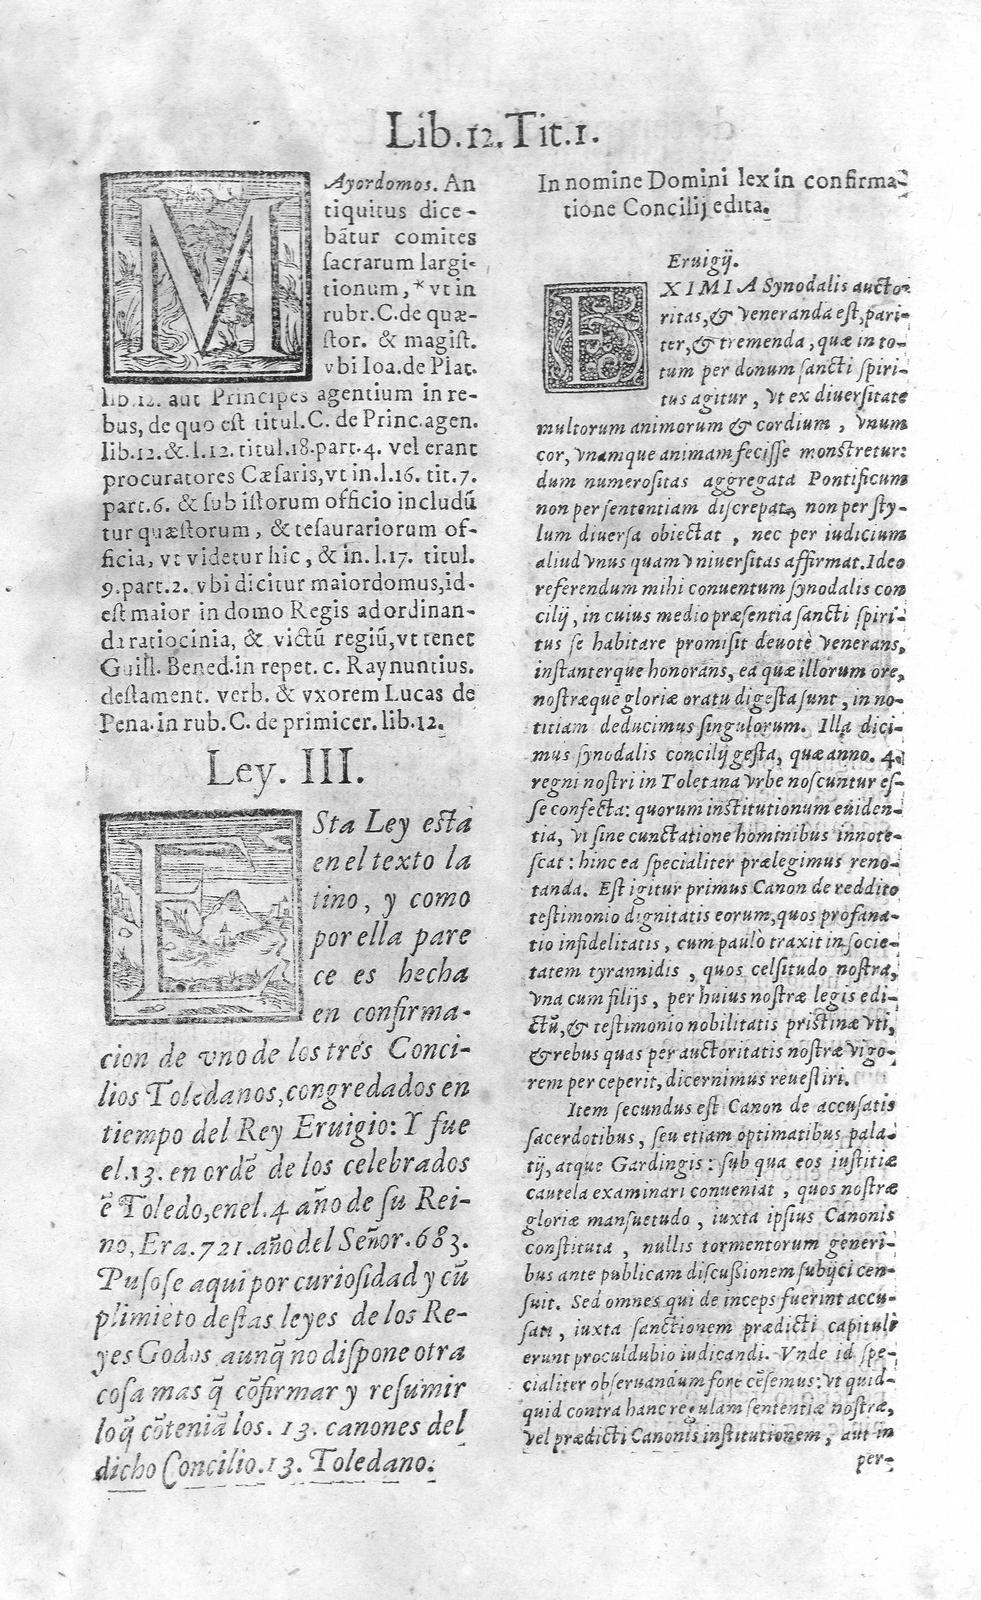 Lib.12.Tit.1.
MAyordomos. An
tiquitus dice-
bãtur comites
sacrarum largi-
tionum, * vt in
rubr. C. de quæ-
stor. & magist.
vbi Ioa. de Plat.
lib.12. aut Principes agentium in re-
bus, de quo est titul. C. de Princ. agen.
lib.12. & l.12. titul.18. part.4. vel erant
procuratores Cæsaris, vt in l.16. tit.7.
part.6. & sub istorum officio includũ
tur quæstorum, & tesaurariorum of-
ficia, vt videtur hic, & in. l.17. titul.
9.part.2. vbi dicitur maiordomus, id-
est maior in domo Regis ad ordinan-
da ratiocinia, & victũ regiũ, vt tenet
Guill. Bened. in repet. c. Raynuntius.
destament. verb. & vxorem Lucas de
Pena. in rub. C. de primicer. lib.12.
Ley. III.
ESta Ley esta
en el texto la
tino, y como
por ella pare
ce es hecha
en confirma-
cion de vno de los trés Conci-
lios Toledanos, congredados en
tiempo del Rey Eruigio: Y fue
el.13. en ordẽ de los celebrados
ẽ Toledo, en el.4 año de su Rei-
no, Era.721. año del Señor.683.
Pusose aqui por curiosidad y cũ
plimiẽto destas leyes de los Re-
yes Godos aunq̃ no dispone otra
cosa mas q̃ cõfirmar y resumir
loq̃ cõteniã los. 13. canones del
dicho Concilio.13. Toledano.
In nomine Domini lex in confirma-
tione Concilij edita.
Eruigij.
EXIMIA Synodalis aucto-
ritas, & veneranda est, pari-
ter, & tremenda, quæ in to-
tum per donum sancti spiri-
tus agitur, vt ex diuersitate
multorum animorum & cordium, vnum
cor, vnamque animam fecisse monstretur:
dum numerositas aggregata Pontificum
non per sententiam discrepat, non per sty-
lum diuersa obiectat, nec per iudicium
aliud vnus quam vniuersitas affirmat. Ideo
referendum mihi conuentum synodalis con
cilij, in cuius medio præsentia sancti spiri-
tus se habitare promisit deuotè venerans,
instanterque honorans, ea quæ illorum ore,
nostræque gloriæ oratu digesta sunt, in no-
titiam deducimus singulorum. Illa dici-
mus synodalis concilij gesta, quæ anno. 4.
regni nostri in Toletana vrbe noscuntur es-
se confecta: quorum institutionum euiden-
tia, vt sine cunctatione hominibus innote-
scat: hinc ea specialiter prælegimus reno-
tanda. Est igitur primus Canon de reddito
testimonio dignitatis eorum, quos profana-
tio infidelitatis, cum paulò traxit in socie-
tatem tyrannidis, quos celsitudo nostra,
vna cum filijs, per huius nostræ legis edi-
ctũ, & testimonio nobilitatis pristinæ vti,
& rebus quas per auctoritatis nostræ vigo-
rem per ceperit, dicernimus reuestiri.
Item secundus est Canon de accusatis
sacerdotibus, seu etiam optimatibus pala-
tij, atque Gardingis: sub qua eos iustitiæ
cautela examinari conueniat, quos nostræ
gloriæ mansuetudo, iuxta ipsius Canonis
constituta, nullis tormentorum generi-
bus ante publicam discussionem subijci cen-
suit. Sed omnes qui de inceps fuerint accu-
sati, iuxta sanctionem prædicti capituli
erunt proculdubio iudicandi. Vnde id spe-
cialiter obseruandum fore cẽsemus: vt quid-
quid contra hanc regulam sententiæ nostræ,
vel prædicti Canonis institutionem, aut in
per-